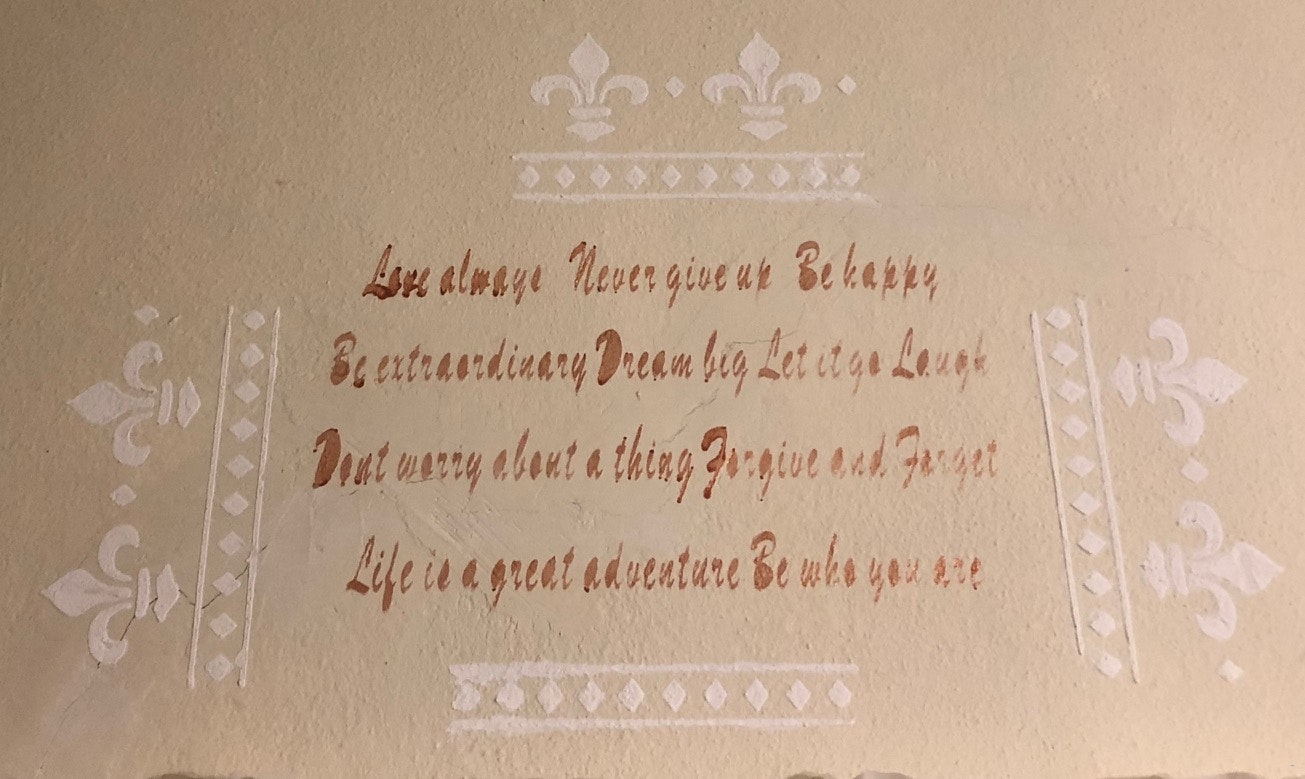 Love always Never give up Be happy
Be extraordinary Dream big Let it go Laugh
Dont worry about a thing Forgive and Forget
Life is a great adventure Be who you are